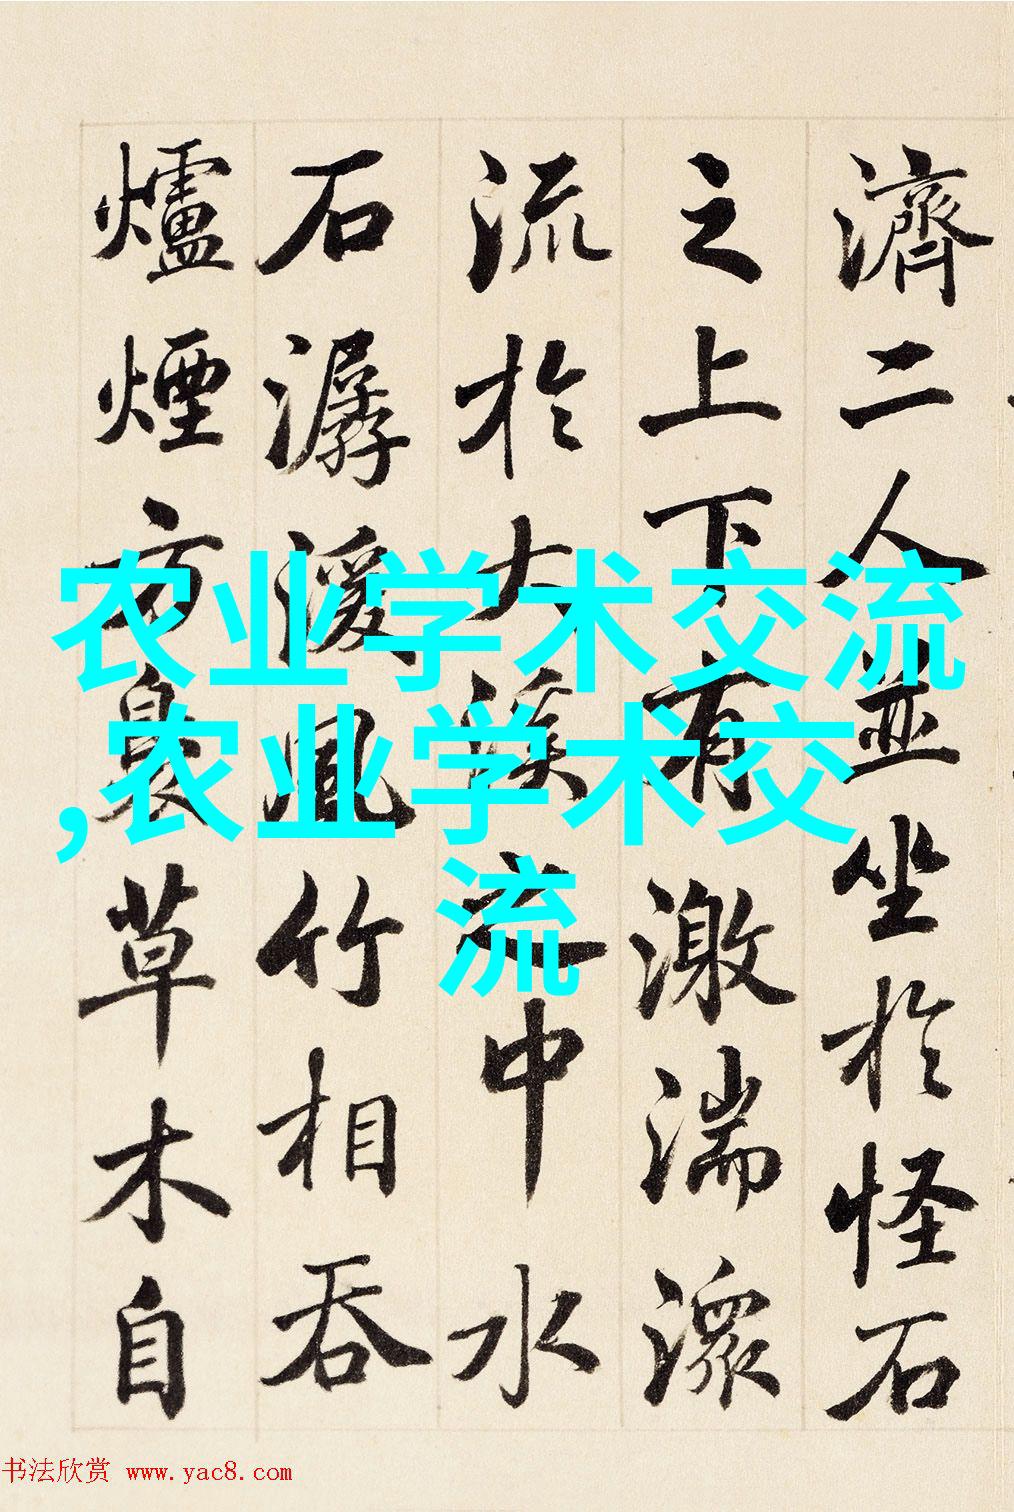 濟二人並坐於怪石
之上下有激湍潨
流於大溪之中水
石潺湲風竹相吞
爐煙方裊草木自
农业学术交流
,农业学术交
流
书法欣赏 www.yac8.com